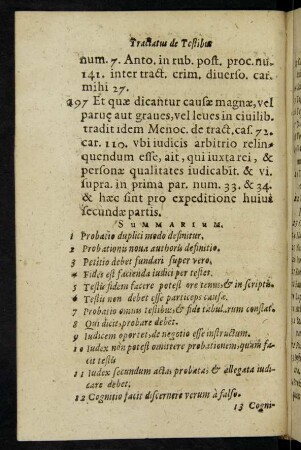 Tractatus de Testibus
num. 7. Anto. in rub. post. proc. nu.
141. inter tract. crim. diuerso. car.
mihi 27.
297 Et quæ dicantur causæ magnæ, vel
paruę aut graues, vel leues in ciuilib.
tradit idem Menoc. de tract. cas. 72.
car. 110. vbi iudicis arbitrio relin-
quendum esse, ait, qui iuxta rei, &
personæ qualitates iudicabit. & vi.
supra. in prima par. num. 33. & 34.
& hæc sint pro expeditione huius
secundæ partis.
SUMMARIUM.
1 Probatio duplici modo definitur.
2 Probationis noua authoris definitio.
3 Petitio debet fundari super vero.
4 Fides est facienda iudici per testes.
5 Testis fidem facere potest ore tenus, & in scriptis
6 Testis non debet esse particeps causæ.
7 Probatio omnis testibus, & fide tabul. rum constat.
8 Qui dicit, probare debet.
9 Iudicem oportet, de negotio esse instructum.
10 Iudex non potest omittere probationem, quam fa-
cit testis
11 Iudex secundum acta probata, & allegata iudi-
care debet.
12 Cognitio facit discernere verum à falso.
13 Cogni-